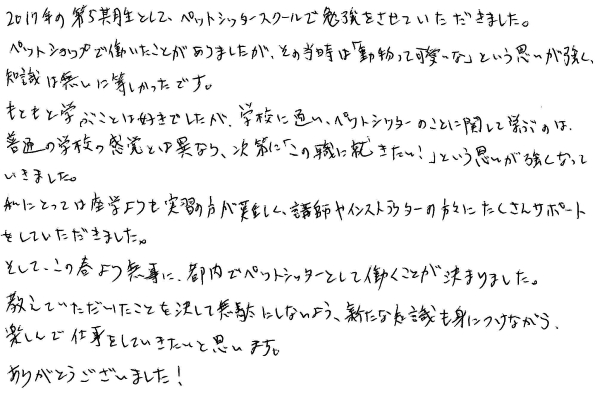 2017年の第5期生として、ペットシッタースクールで勉強をさせていただきました。
ペットショップで働いたことがありましたが、その当時は「動物って可愛いな」という思いが強く、
知識は無しに等しかったです。
もともと学ぶことは好きでしたが、学校に通い、ペットシッターのことに関して学ぶのは、
普通の学校の感覚とは異なり、次第に「この職に就きたい！」という思いが強くなって
いきました。
私にとっては座学よりも実習の方が難しく、講師やインストラクターの方々にたくさんサポート
をしていただきました。
そして、この春より無事に、都内でペットシッターとして働くことが決まりました。
教えていただいたことを決して無駄にしないよう、新たな知識も身につけながら、
楽しんで仕事をしていきたいと思います。
ありがとうございました！